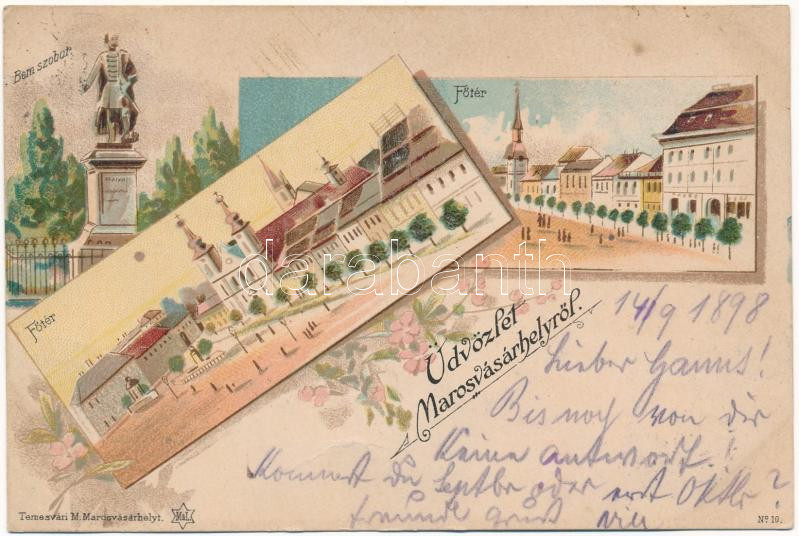 Bem szobor
Főtér
Főtér
darabanth
Üdvözlet
Marosvásárhelyről.
14/9 1898
Lieber Hanns!
Bis noch von dir
Keine antwort!
Kommst du Septbr oder erst Oktbr?
freundl gruß
Temesvári M. Marosvásárhelyt.
No 10.